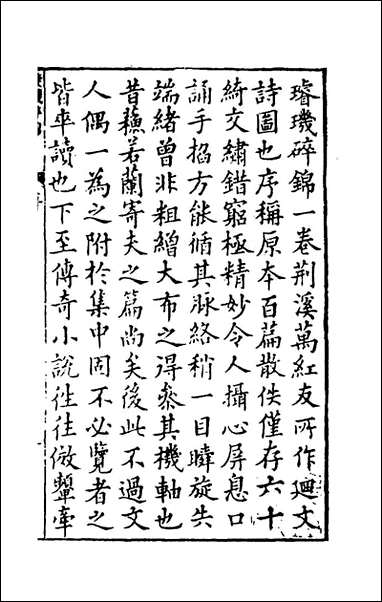 璿璣碎錦一卷荆溪萬紅友所作廻文
詩圖也序稱原本百篇散佚僅存六十
綺文繡錯窮極精妙令人攝心屏息口
誦手搯方能循其脉絡稍一目瞚旋失
端緒曾非粗繒大布之得參其機軸也
昔蘇若蘭寄夫之篇尚矣後此不過文
人偶一為之附於集中固不必覽者之
皆卒讀也下至傳奇小說徃徃倣顰牽